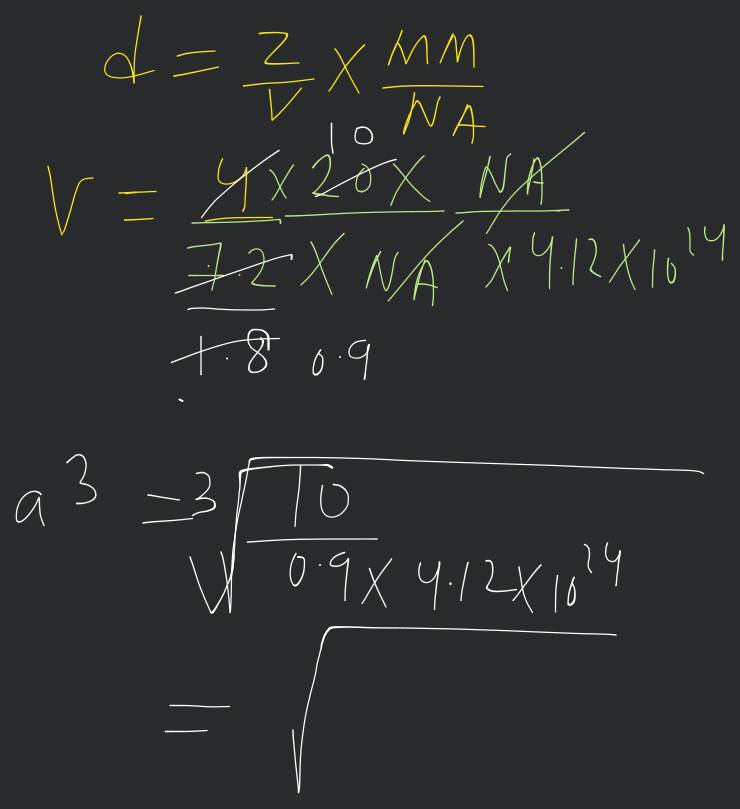 d = Z/V × MM/NA
10
V = 4 × 20 × NA
7.2 × NA × 4.12 × 10^24
1.8 0.9
a^3 = 3√10
0.9 × 4.12 × 10^24
= √